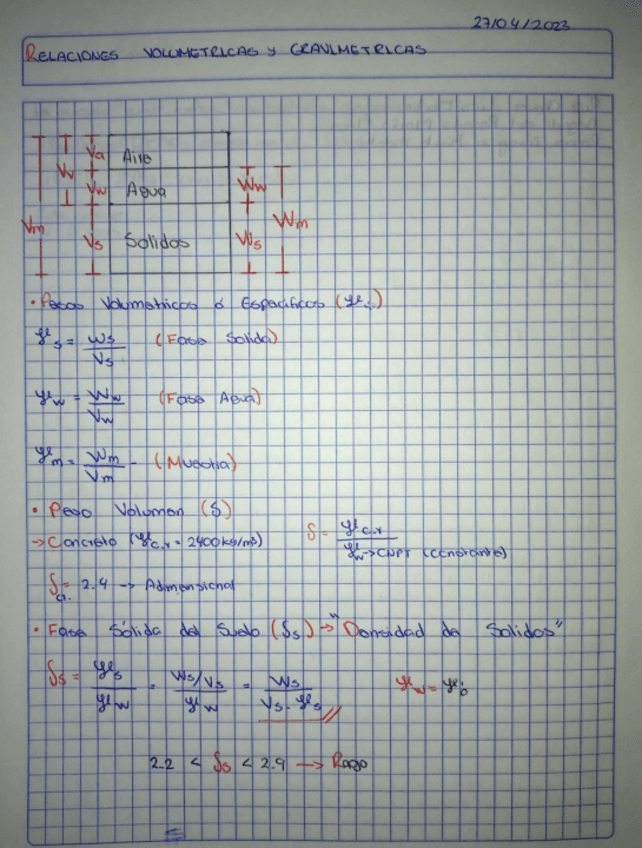 27/04/2023
RELACIONES VOLUMETRICAS y GRAVIMETRICAS
Va Aire
Vv
Vw Agua Ww
Vm Wm
Vs Solidos Ws
• Pesos Volumetricos ó Especificos (γi)
γs = Ws/Vs (Fase Solida)
γw = Ww/Vw (Fase Agua)
γm = Wm/Vm (Muestra)
• Peso Volumen (S)
→ Concreto (γc.r = 2400 kg/m3) S = γc.r/γw → CNPT (constante)
Scr. = 2.4 → Admensional
• Fase Sólida del Suelo (Ss) → "Densidad de Solidos"
Ss = γs/γw = Ws/Vs/γw = Ws/Vs.γs γw = γo
2.2 < Ss < 2.9 → Rango